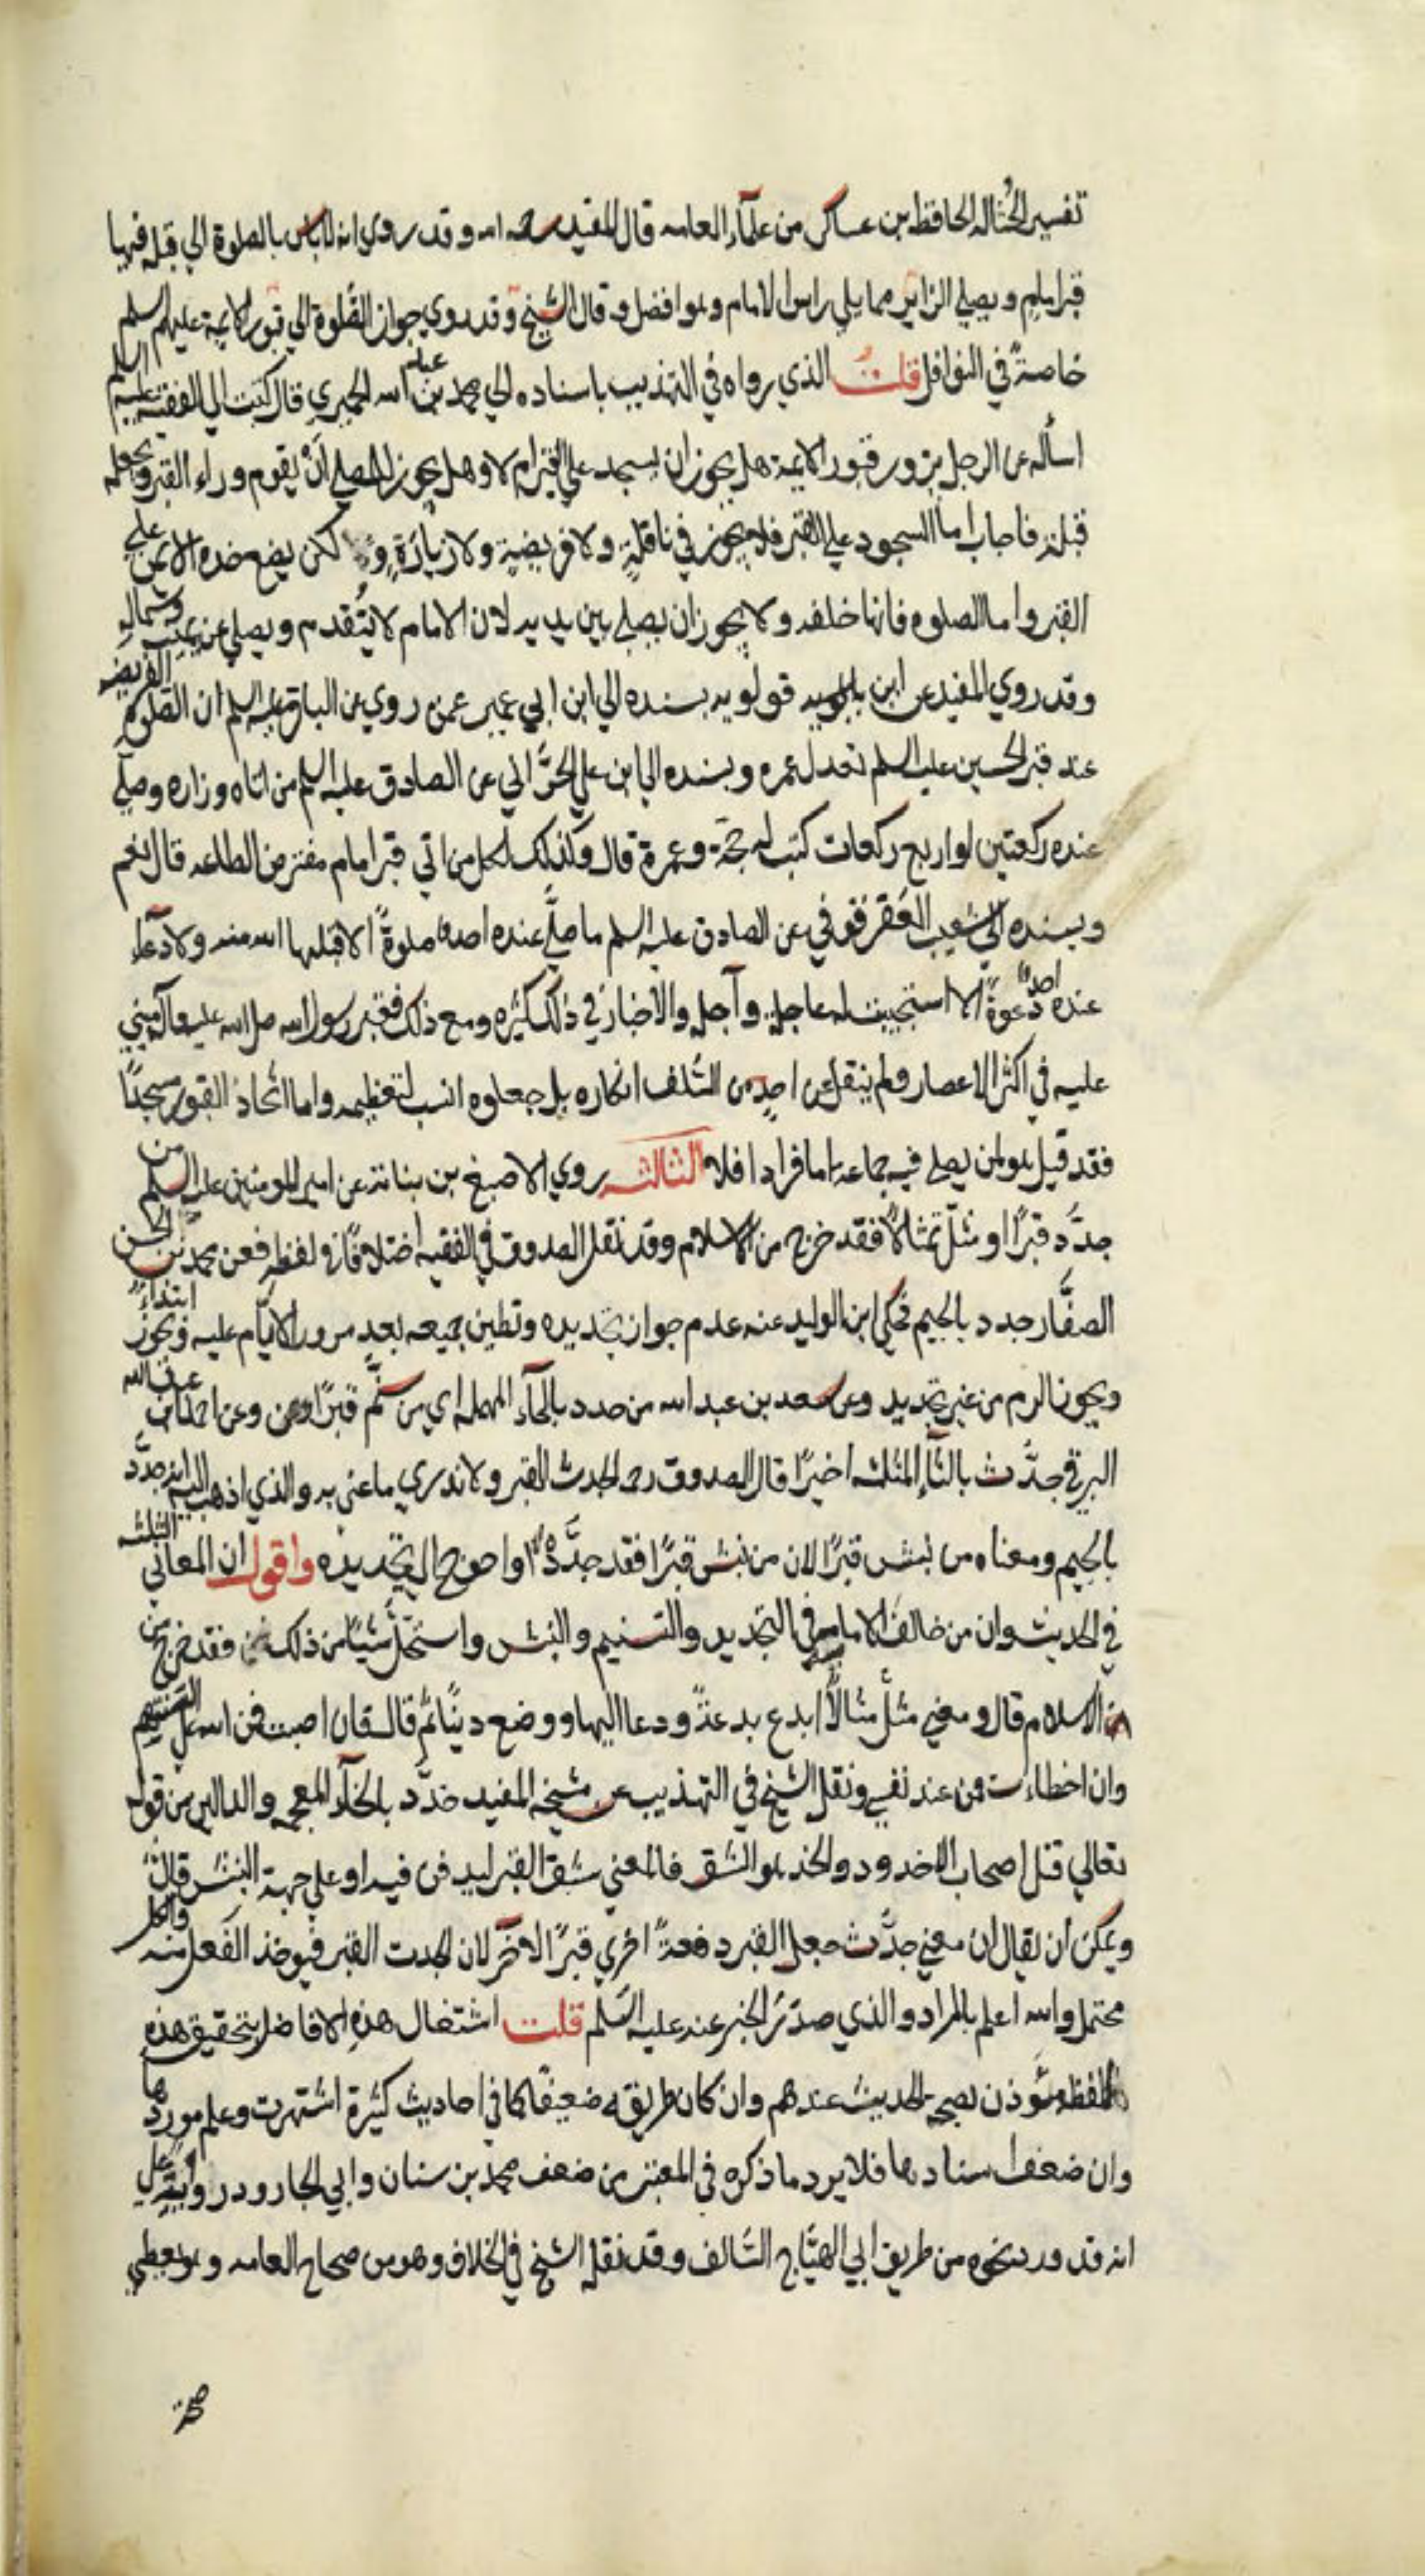 تفسير الحثاله الحافظ بن عساكر من علمآء العامه قال المفيد رحمه الله وقد روي انه لا باس بالصلوة الي قبله فيها
قبر امام ويصلي الزاير مما يلي راس الامام وهو افضل وقال الشيخ وقد روي جواز الصلوة الي قبور الايمة عليهم السلم
خاصةً في النوافل قلت الذي رواه في التهذيب باسناده الي محمد بن عبد الله الحميري قال كتبت الي الفقيه عليه السلم
اسأله عن الرجل يزور قبور الايمة هل يجوز ان يسجد علي القبر ام لا وهل يجوز لمن صلي ان يقوم وراء القبر ويجعله
قبلة فاجاب اما السجود علي القبر فلا يجوز في نافلةٍ ولا فريضةٍ ولا زيارةٍ و لكن يضع خده الايمن علي
القبر واما الصلوه فانها خلفه ولا يجوز ان يصلي بين يديه لان الامام لا يتقدم ويصلي عن يمينه وشماله
وقد روي المفيد عن ابن قولويه بسنده الي ابن ابي عمير عمن روي عن الباقر عليه السلم ان الصلوة الفريضه
عند قبر الحسين عليه السلم تعدل عمره وبسنده الي ابن علي الحرَّاني عن الصادق عليه السلم من اتاه وزاره وصلّي
عنده ركعتين او اربع ركعات كتب له حجة وعمرة قال وكذلك لكل من اتي قبر امام مفترض الطاعه قال نعم
وبسنده الي شعيب العقرقوفي عن الصادق عليه السلم ما صلّي عنده احد صلوةً الا قبلها الله منه ولا دعا
عنده احد دعوةً الا استجيبت له عاجله وآجله والاخبار في ذلك كثيره ومع ذلك فقبر رسول الله صلي الله عليه وآله مبني
عليه في اكثر الاعصار ولم ينقل عن احدٍ من السلف انكاره بل جعلوه انسب لتعظيمه واما اتخاذ القبور مسجدًا
فقد قيل هو لمن يصلي فيه جماعه اما فرادا فلا الثالثه روي الاصبغ بن نباتة عن امير المومنين عليه السلم من
جدَّد قبرًا او مثّل تمثالا فقد خرج من الاسلام وقد نقل الصدوق في الفقيه اختلافًا في لفظه فعن محمد بن الحسن
الصفَّار جدد بالجيم فحكي ابن الوليد عنه عدم جواز تجديده وتطيين جميعه بعد مرور الايَّام عليه ويجوز ابتداءً
ويجوز الرم من غير تجديد وعن سعد بن عبد الله من حدد بالحآء المهمله اي من سنَّم قبرًا وعن احمد بن ابي عبد الله
البرقي جدَّث بالثآء المثلثه اخيرًا قال الصدوق ره الجدث القبر ولا ندري ما عني به والذي اذهب اليه انه جدَّد
بالجيم ومعناه من نبش قبرًا لان من نبش قبرًا فقد جدَّده او احوج الي تجديده واقول ان المعاني الثلثه
في الحديث وان من خالف الامام في التجديد والتسنيم والنبش واستحلّ شيئًا من ذلك فقد خرج من
الاسلام قال ومعني مثّل مثالاً ابدع بدعةً ودعا اليها او وضع دينًا ثم قال فان اصبت فمن الله علي السنتهم
وان اخطاءت فمن عند نفسي ونقل الشيخ في التهذيب عن شيخه المفيد خدَّد بالخآء المعجمه والدالين من قوله
تعالي قتل اصحاب الاخدود والخد هو الشق فالمعني شق القبر ليدفن فيه او علي جهة النبش قالت
ويمكن ان يقال ان معني جدَّث جعل القبر دفعةً اخري قبرًا لاخر لان الجدث القبر فيوخذ الفعل منه والكل
محتمل والله اعلم بالمراد والذي صدَر الخبر عنه عليه السّلم قلت اشتغال هذهِ الافاضل بتحقيق هذه
اللفظه مؤذن بصحة الحديث عندهم وان كان طريقه ضعيفًا كما في احاديث كثيرة اشتهرت وعلم موردها
وان ضعف اسنادها فلا يرد ما ذكره في المعتبر من ضعف محمد بن سنان وابي الجارود راوييه علي
انه قد ورد نحوه من طريق ابي الهيَّاج السَّالف وقد نقله الشيخ في الخلاف وهو من صحاح العامه وهو يعطي
صحة